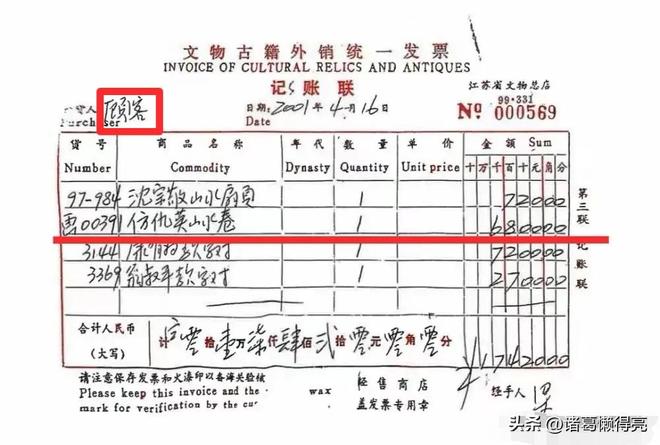 文物古籍外销统一发票
INVOICE OF CULTURAL RELICS AND ANTIQUES
记账联
江苏省文物总店
99·331
顾客
Purchaser
日期 2001年4月16
Date
Nº 000569
货号 商品名称 年代 数量 单价 金额 Sum
Number Commodity Dynasty Quantity Unit price 十万千百十元角分
97-984 沈宗敬山水扇页 1 72000
00391 仿仇英山水卷 1 680000
3144 款字对 1 720000
3369 翁叔平款字对 1 270000
第三联 记账联
合计人民币
(大写)
计 零拾壹万柒仟肆佰贰拾零元零角零分
1742000
请注意保存发票和火漆印以备海关验核
Please keep this invoice and the wax
mark for verification by the
经售商店
盖发票专用章
经手人 梁
头条 @诸葛懒得亮